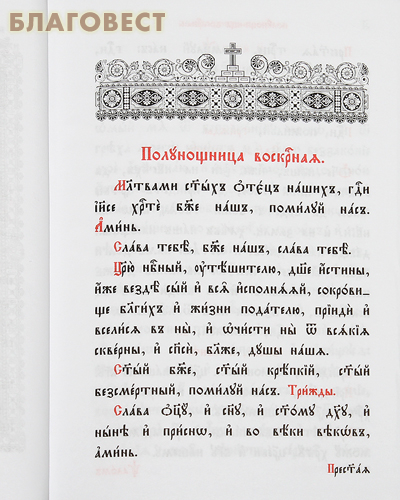 БЛАГОВЕСТ
Полꙋ́нощница воскрⷭ҇наѧ.
Мл҃твами ст҃ы́хъ ѻ҆тє́цъ на́шихъ, гдⷭ҇и
і҆и҃се хрⷭ҇тѐ бж҃е на́шъ, поми́лꙋй на́съ.
А҆ми́нь.
Сла́ва тебѣ̀, бж҃е на́шъ, сла́ва тебѣ̀.
Цр҃ю̀ нбⷭ҇ный, ᲂу҆тѣ́шителю, дш҃е и҆́стины,
и҆́же вездѣ̀ сы́й и҆ всѧ̑ и҆сполнѧ́ѧй, сокро́ви-
ще бл҃ги́хъ и҆ жи́зни пода́телю, прїидѝ и҆
всели́сѧ въ ны̀, и҆ ѡ҆чи́сти ны̀ ѿ всѧ́кїѧ
скве́рны, и҆ сп҃сѝ, бл҃же, дꙋ́шы на́шѧ.
Ст҃ы́й бж҃е, ст҃ы́й крѣ́пкїй, ст҃ы́й
безсме́ртный, поми́лꙋй на́съ. Три́жды.
Сла́ва ѻ҆ц҃ꙋ̀, и҆ сн҃ꙋ, и҆ ст҃о́мꙋ дх҃ꙋ, и҆
ны́нѣ и҆ при́снѡ, и҆ во вѣ́ки вѣкѡ́въ,
а҆ми́нь.
Прест҃а́ѧ